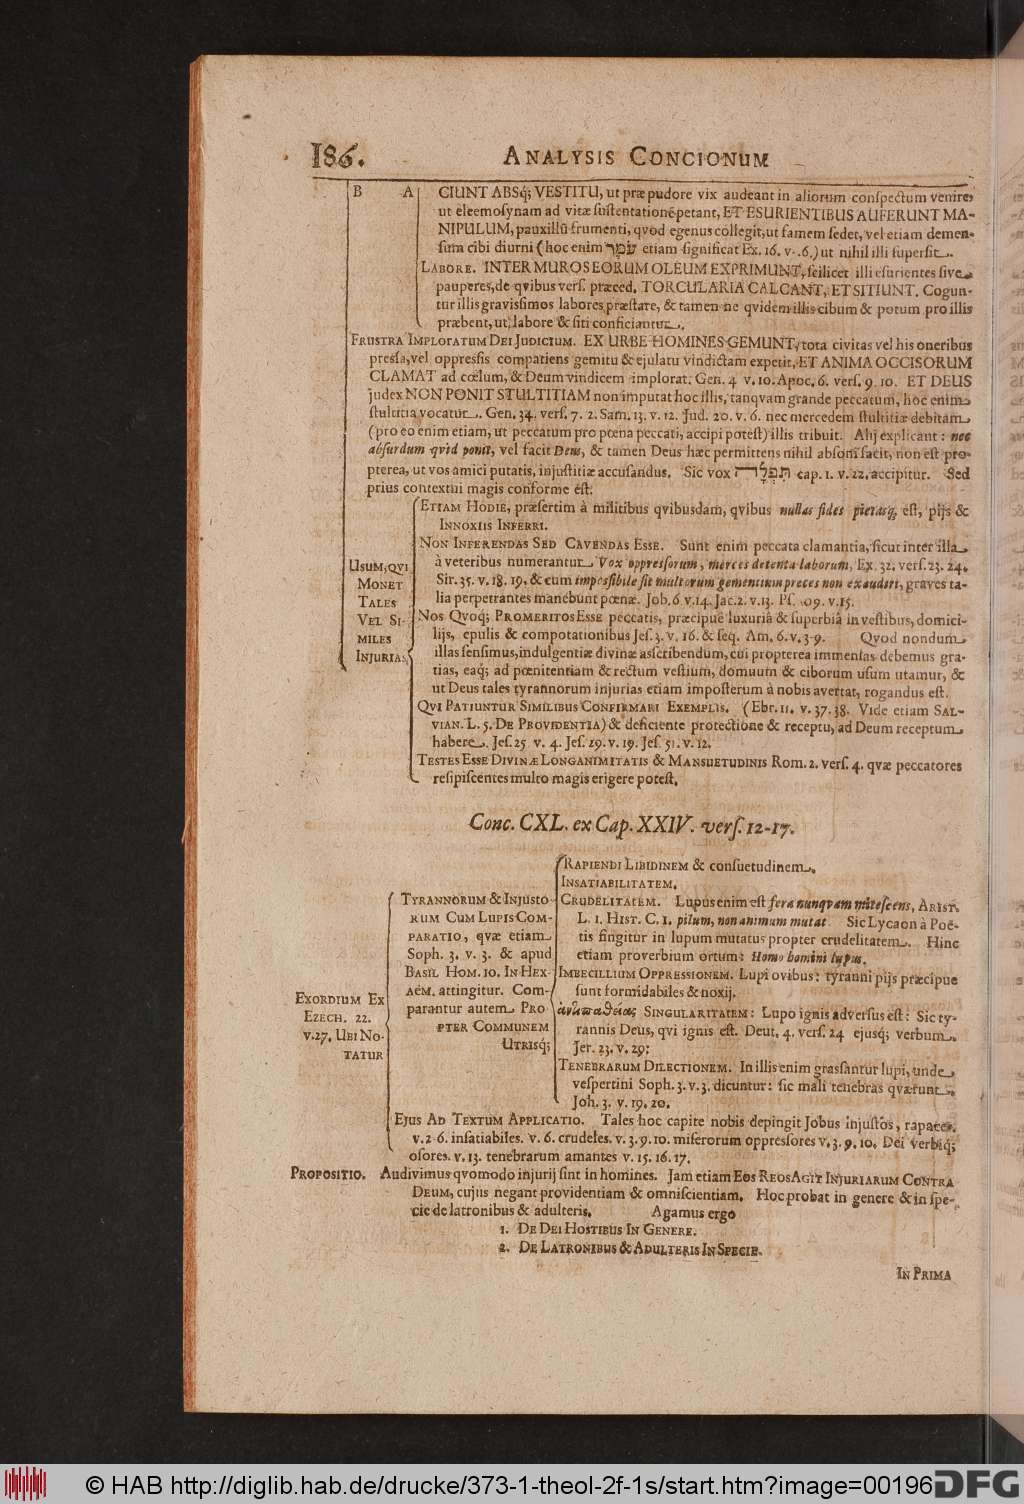 186. ANALYSIS CONCIONUM
B A CIUNT ABSq́; VESTITU, ut præ pudore vix audeant in aliorum conſpectum venire,
ut eleemoſynam ad vitæ ſuſtentationē petant, ET ESURIENTIBUS AUFERUNT MA-
NIPULUM, pauxillū frumenti, qvod egenus collegit, ut famem ſedet, vel etiam demen-
ſum cibi diurni (hoc enim עמר etiam ſignificat Ex. 16. v. .6.) ut nihil illi ſuperſit.
LABORE. INTER MUROS EORUM OLEUM EXPRIMUNT, ſcilicet illi eſurientes ſive
pauperes, de qvibus verſ. præced. TORCULARIA CALCANT, ET SITIUNT. Cogun-
tur illis graviſſimos labores præſtare, & tamen ne qvidem illis cibum & potum pro illis
præbent, ut labore & ſiti conficiantur.
FRUSTRA IMPLORATUM DEI JUDICIUM. EX URBE HOMINES GEMUNT, tota civitas vel his oneribus
preſſa, vel oppreſſis compatiens gemitu & ejulatu vindictam expetit, ET ANIMA OCCISORUM
CLAMAT ad cœlum, & Deum vindicem implorat. Gen. 4 v. 10. Apoc. 6. verſ. 9. 10. ET DEUS
judex NON PONIT STULTITIAM non imputat hoc illis, tanqvam grande peccatum, hoc enim
ſtultitia vocatur. Gen. 34. verſ. 7. 2. Sam. 13. v. 12. Jud. 20. v. 6. nec mercedem ſtultitiæ debitam
(pro eo enim etiam, ut peccatum pro pœna peccati, accipi poteſt) illis tribuit. Alij explicant: nec
abſurdum qvid ponit, vel facit Deus, & tamen Deus hæc permittens nihil abſoni facit, non eſt pro-
pterea, ut vos amici putatis, injuſtitiæ accuſandus. Sic vox תפלה cap. 1. v. 22. accipitur. Sed
prius contextui magis conforme eſt.
ETIAM HODIE, præſertim à militibus qvibusdam, qvibus nullas fides pietasq, eſt, pijs &
INNOXIIS INFERRI.
NON INFERENDAS SED CAVENDAS ESSE. Sunt enim peccata clamantia, ſicut inter illa
à veteribus numerantur Vox oppreſſorum, merces detenta laborum, Ex. 32. verſ. 23. 24.
Sir. 35. v. 18. 19. & cum impoſſibile ſit multorum gementium preces non exaudiri, graves ta-
lia perpetrantes manebunt pœnæ. Job. 6 v. 14. Jac. 2. v. 13. Pſ. 109. v. 15.
USUM, QVI
MONET
TALES
VEL SI-
MILES
INJURIAS,
NOS QVOq́; PROMERITOS ESSE peccatis, præcipuè luxuriâ & ſuperbiâ in veſtibus, domici-
lijs, epulis & compotationibus Jeſ. 3. v. 16. & ſeq. Am. 6. v. 3-9. Qvod nondum
illas ſenſimus, indulgentiæ divinæ aſſcribendum, cui propterea immenſas debemus gra-
tias, eaq́; ad pœnitentiam & rectum veſtium, domuum & ciborum uſum utamur, &
ut Deus tales tyrannorum injurias etiam impoſterum à nobis avertat, rogandus eſt.
QVI PATIUNTUR SIMILIBUS CONFIRMARI EXEMPLIS. (Ebr. 11. v. 37. 38. Vide etiam SAL-
VIAN. L. 5. DE PROVIDENTIA) & deficiente protectione & receptu, ad Deum receptum
habere. Jeſ. 25 v. 4. Jeſ. 29. v. 19. Jeſ. 51. v. 12.
TESTES ESSE DIVINÆ LONGANIMITATIS & MANSUETUDINIS Rom. 2. verſ. 4. qvæ peccatores
reſipiſcentes multo magis erigere poteſt.
Conc. CXL. ex Cap. XXIV. verſ. 12-17.
EXORDIUM EX
EZECH. 22.
v. 27. UBI NO-
TATUR
TYRANNORUM & INJUSTO-
RUM CUM LUPIS COM-
PARATIO, qvæ etiam
Soph. 3. v. 3. & apud
BASIL HOM. 10. IN HEX-
AËM. attingitur. Com-
parantur autem PRO
PTER COMMUNEM
UTRISq́;
RAPIENDI LIBIDINEM & conſuetudinem.
INSATIABILITATEM.
CRUDELITATEM. Lupus enim eſt fera nunqvam miteſcens, ARIST.
L. 1. HIST. C. 1. pilum, non animum mutat Sic Lycaon à Poë-
tis fingitur in lupum mutatus propter crudelitatem. Hinc
etiam proverbium ortum: Homo homini lupus.
IMBECILLIUM OPPRESSIONEM. Lupi ovibus: tyranni pijs præcipuè
ſunt formidabiles & noxij.
SINGULARITATEM: Lupo ignis adverſus eſt: Sic ty-
rannis Deus, qvi ignis eſt. Deut. 4. verſ. 24 ejusq́; verbum.
Jer. 23. v. 29:
TENEBRARUM DILECTIONEM. In illis enim graſſantur lupi, unde
veſpertini Soph. 3. v. 3. dicuntur: ſic mali tenebras qværunt.
Joh. 3. v. 19. 20.
EJUS AD TEXTUM APPLICATIO. Tales hoc capite nobis depingit Jobus injuſtos, rapaces.
v. 2-6. inſatiabiles. v. 6. crudeles. v. 3. 9. 10. miſerorum oppreſſores v. 3. 9. 10. Dei verbiq́;
oſores. v. 13. tenebrarum amantes v. 15. 16. 17.
PROPOSITIO. Audivimus qvomodo injurij ſint in homines. Jam etiam EOS REOS AGIT INJURIARUM CONTRA
DEUM, cujus negant providentiam & omniſcientiam. Hoc probat in genere & in ſpe-
cie de latronibus & adulteris. Agamus ergo
1. DE DEI HOSTIBUS IN GENERE.
2. DE LATRONIBUS & ADULTERIS IN SPECIE.
IN PRIMA
© HAB http://diglib.hab.de/drucke/373-1-theol-2f-1s/start.htm?image=00196
DFG